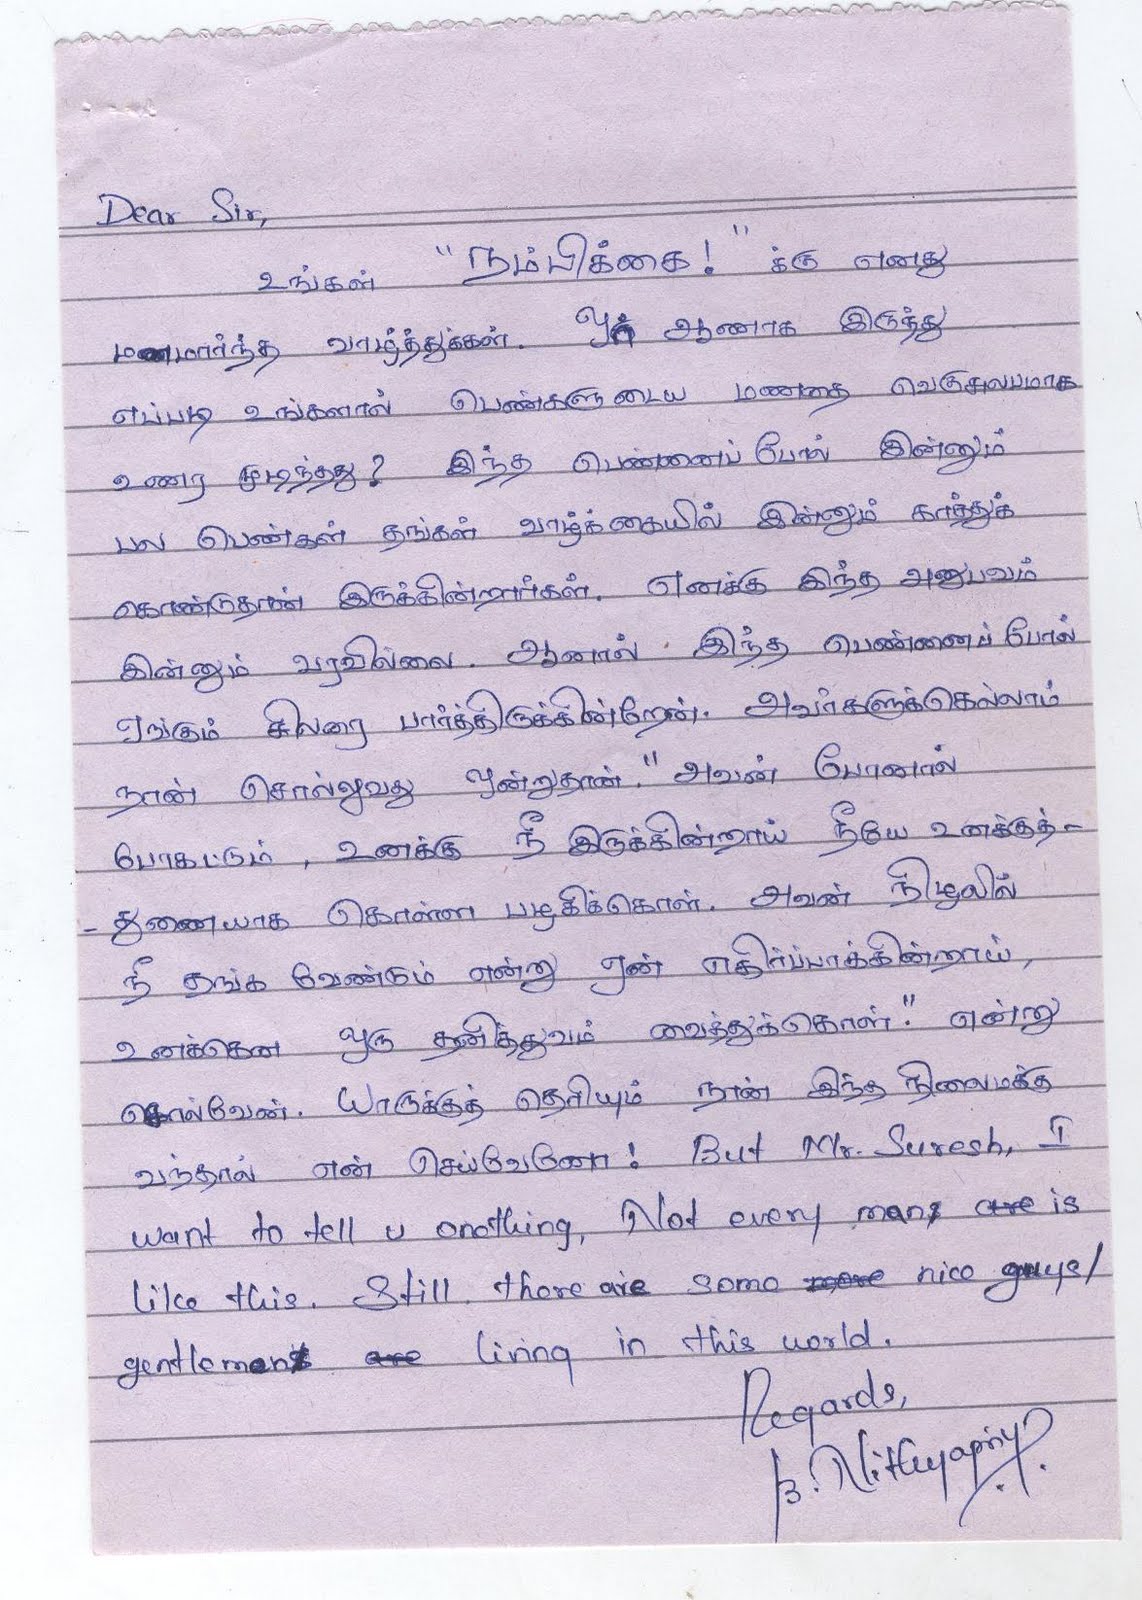 Dear Sir,
உங்கள் "நம்பிக்கை!" க்கு எனது
மனமார்ந்த வாழ்த்துக்கள். ஒரு ஆணாக இருந்து
எப்படி உங்களால் பெண்களுடைய மணதை வெகுசுலபமாக
உணர முடிந்தது? இந்த பெண்ணைப் போல் இன்னும்
பல பெண்கள் தங்கள் வாழ்க்கையில் இன்னும் காத்துக்
கொண்டுதான் இருக்கின்றார்கள். எனக்கு இந்த அனுபவம்
இன்னும் வரவில்லை. ஆனால் இந்த பெண்ணைப் போல்
ஏங்கும் சிலரை பார்த்திருக்கின்றேன். அவர்களுக்கெல்லாம்
நான் சொல்லுவது ஒன்றுதான். "அவன் போனால்
போகட்டும், உனக்கு நீ இருக்கின்றாய் நீயே உனக்குத்-
- துணையாக கொள்ள பழகிக்கொள். அவன் நிழலில்
நீ தங்க வேண்டும் என்று ஏன் எதிர்ப்பாக்கின்றாய்,
உனக்கென ஒரு தனித்துவம் வைத்துக்கொள்." என்று
சொல்வேன். யாருக்குத் தெரியும் நான் இந்த நிலைமக்கு
வந்தால் என் செய்வேனோ! But Mr. Suresh, I
want to tell u onething, Not every man is
like this. Still there are some nice guys/
gentlemen living in this world.
Regards,
B. Nithyapriy